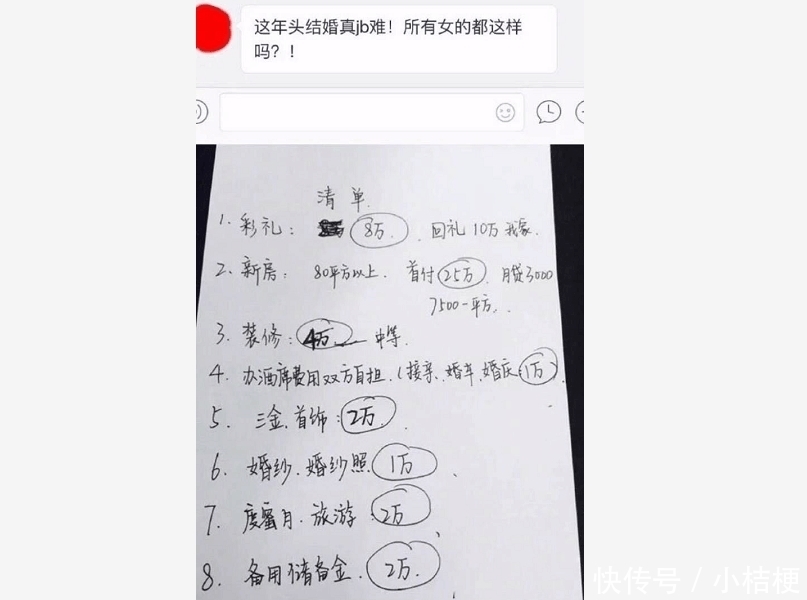 这年头结婚真jb难！所有女的都这样
吗？！
清单.
1. 彩礼： 8万. . 回礼10万我家.
2. 新房： 80平方以上. 首付25万. 月贷3000
7500一平方.
3. 装修：4万 中等.
4. 办酒席费用双方自担.（接亲、婚车、婚庆：1万）
5. 三金.首饰：2万.
6. 婚纱.婚纱照 1万.
7. 度蜜月.旅游：2万
8. 备用储备金. 2万.
快传号 / 小桔梗